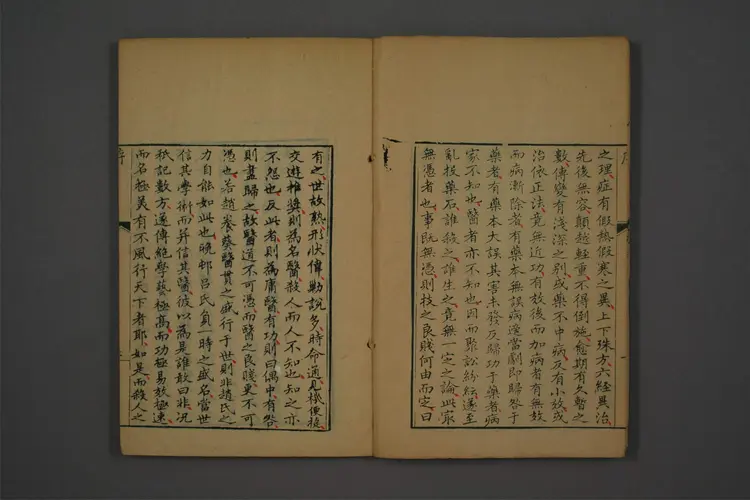 之理症有假熱假寒之異上下殊方六經異治
先後無容顛越輕重不得倒施愈期有久暫之
數傳變有淺深之別或藥不中病反有小效或
治依正法竟無近功有效後而加病者有無效
而病漸除者有藥本無誤病適當劇即歸咎于
藥者有藥本大誤其害未發反歸功于藥者病
家不知也醫者亦不知也因而聚訟紛紜遂至
亂投藥石誰殺之誰生之竟無一定之論此最
無憑者也事既無憑則技之良賤何由而定曰
有之世故熟形狀偉勦說多時命通見機便捷
交遊推獎則為名醫殺人而人不知也知之亦
不怨也反此者則為庸醫有功則曰偶中有咎
則盡歸之故醫道不可憑而醫之良賤更不可
憑也若趙養葵醫貫之盛行于世則非趙氏之
力自能如此也晚邨呂氏負一時之盛名當世
信其學術而并信其醫彼以為是誰敢曰非况
祇記數方遂傳絕學藝極高而功極易效極速
而名極美有不風行天下者耶如是而殺人之
序